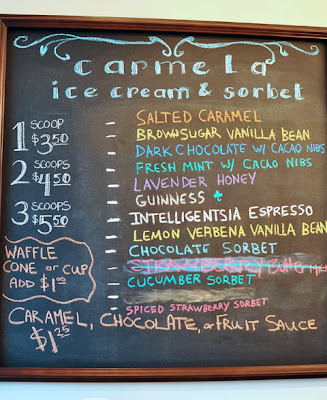 carmela
ice cream & sorbet
1 SCOOP $3.50
2 SCOOPS $4.50
3 SCOOPS $5.50
WAFFLE
CONE or CUP
ADD $1.00
- SALTED CARAMEL
- BROWNSUGAR VANILLA BEAN
- DARK CHOCOLATE W/ CACAO NIBS
- FRESH MINT W/ CACAO NIBS
- LAVENDER HONEY
- GUINNESS
- INTELLIGENTSIA ESPRESSO
- LEMON VERBENA VANILLA BEAN
- CHOCOLATE SORBET
- STRAWBERRY
- CUCUMBER SORBET
- SPICED STRAWBERRY SORBET
CARAMEL, CHOCOLATE, or FRUIT SAUCE
$1.25